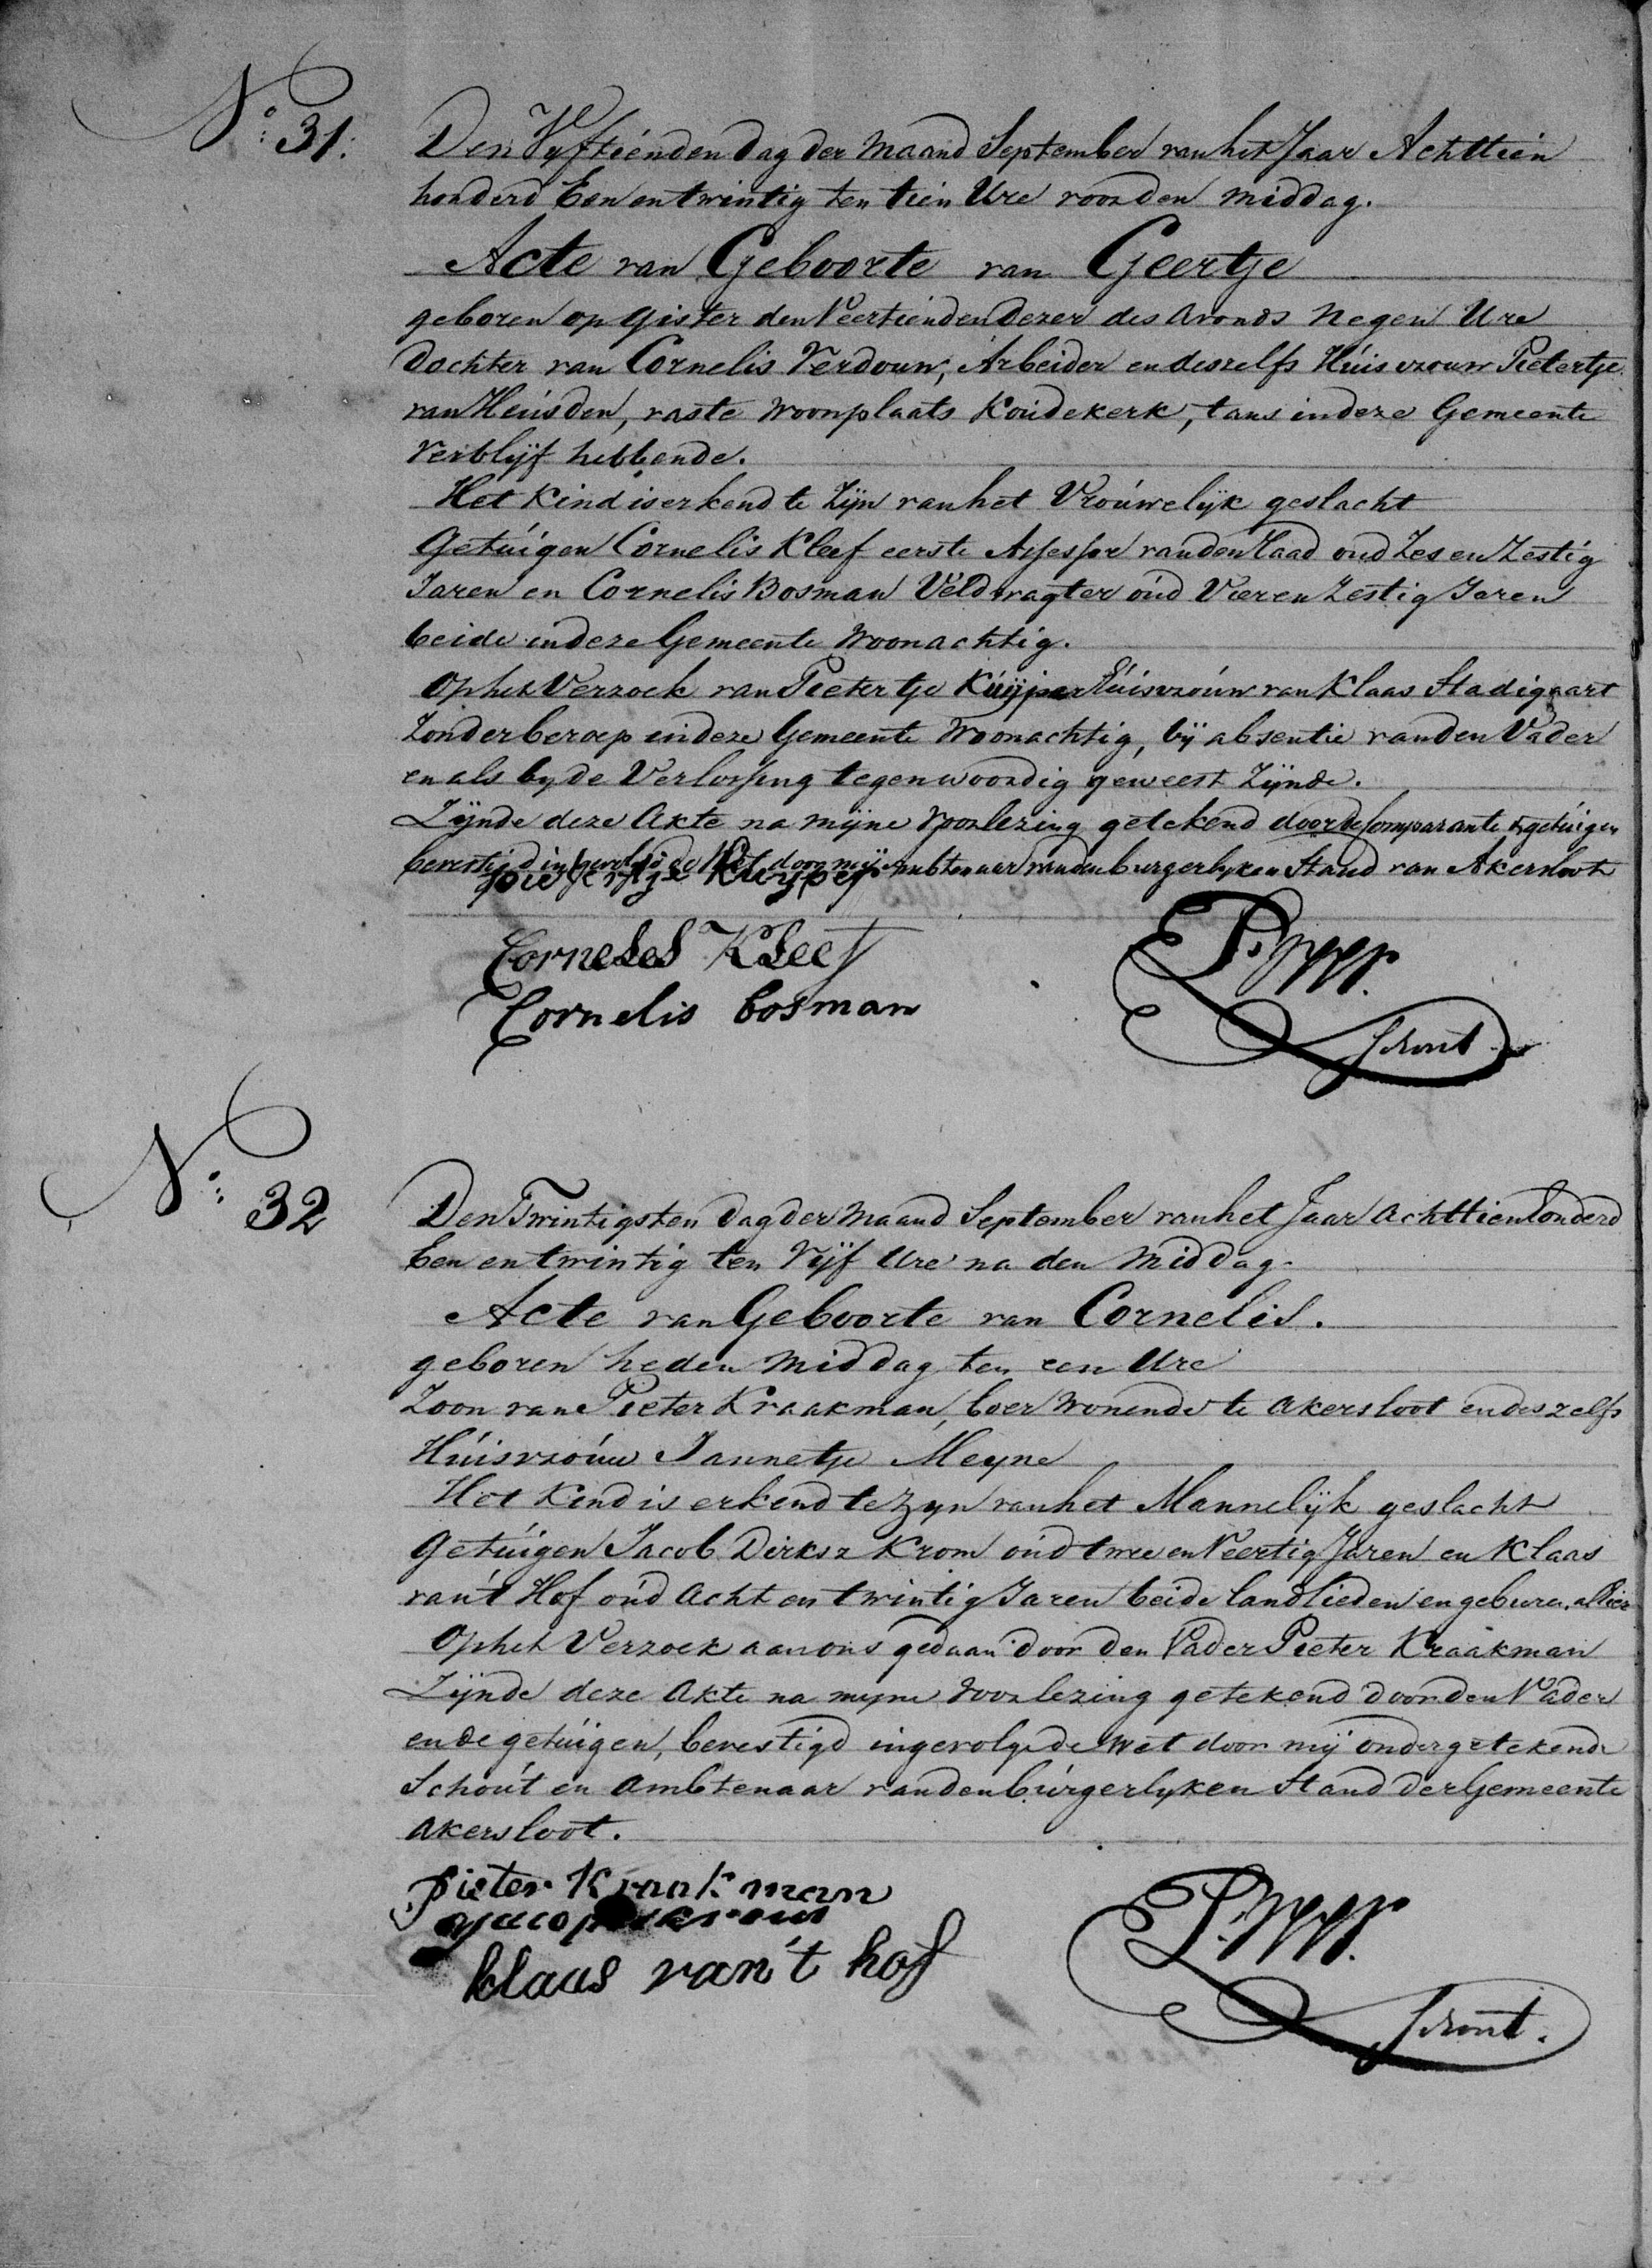 No: 31.
Den Vyftienden dag der Maand September van het Jaar Achttien
honderd Een en twintig ten tien Ure voor den middag.
Acte van Geboorte van Geertje
geboren op gister den Veertienden dezer des Avonds Negen Ure
Dochter van Cornelis Verdouw, Arbeider en deszelfs Huisvrouw Pietertje
van Heusden, vaste Woonplaats Koudekerk, tans in deze Gemeente
Verblijf hebbende.
Het Kind is erkend te Zijn van het Vrouwelijk geslacht
Getuigen Cornelis Kleef eerste Assessor van den Raad oud Zes en Zestig
Jaren en Cornelis Bosman Veldwagter oud Vier en Zestig Jaren
beide in deze Gemeente Woonachtig.
Op het Verzoek van Pietertje Kuijper Huisvrouw van Klaas Stadigaart
Zonder beroep in deze Gemeente Woonachtig, bij absentie van den Vader
en als by de Verlossing tegenwoordig geweest Zijnde.
Zijnde deze Akte na mijne Voorlezing getekend door de Comparante & getuigen
bevestigd ingevolge de Wet door mij Ambtenaar van den burgerlyken Stand van Akersloot
pietertje kuyper
Corneles Kleef
Cornelis bosman
Schout
No: 32
Den Twintigsten dag der Maand September van het Jaar Achttien honderd
Een en twintig ten Vijf Ure na den Middag.
Acte van Geboorte van Cornelis.
geboren heden Middag ten een Ure
Zoon van Pieter Kraakman, boer Wonende te Akersloot en deszelfs
Huisvrouw Jannetje Meyne
Het Kind is erkend te zyn van het Mannelijk geslacht
Getuigen Jacob Dirksz Krom oud twee en Veertig Jaren en Klaas
van't Hof oud Acht en twintig Jaren beide landlieden en geburen alhier
Op het Verzoek aan ons gedaan door den Vader Pieter Kraakman
Zijnde deze Akte na myne Voorlezing getekend door den Vader
en de getuigen, bevestigd ingevolge de Wet door mij ondergetekende
Schout en Ambtenaar van den burgerlyken Stand der Gemeente
Akersloot.
Pieter Kraakman
klaas van't hof
Schout.